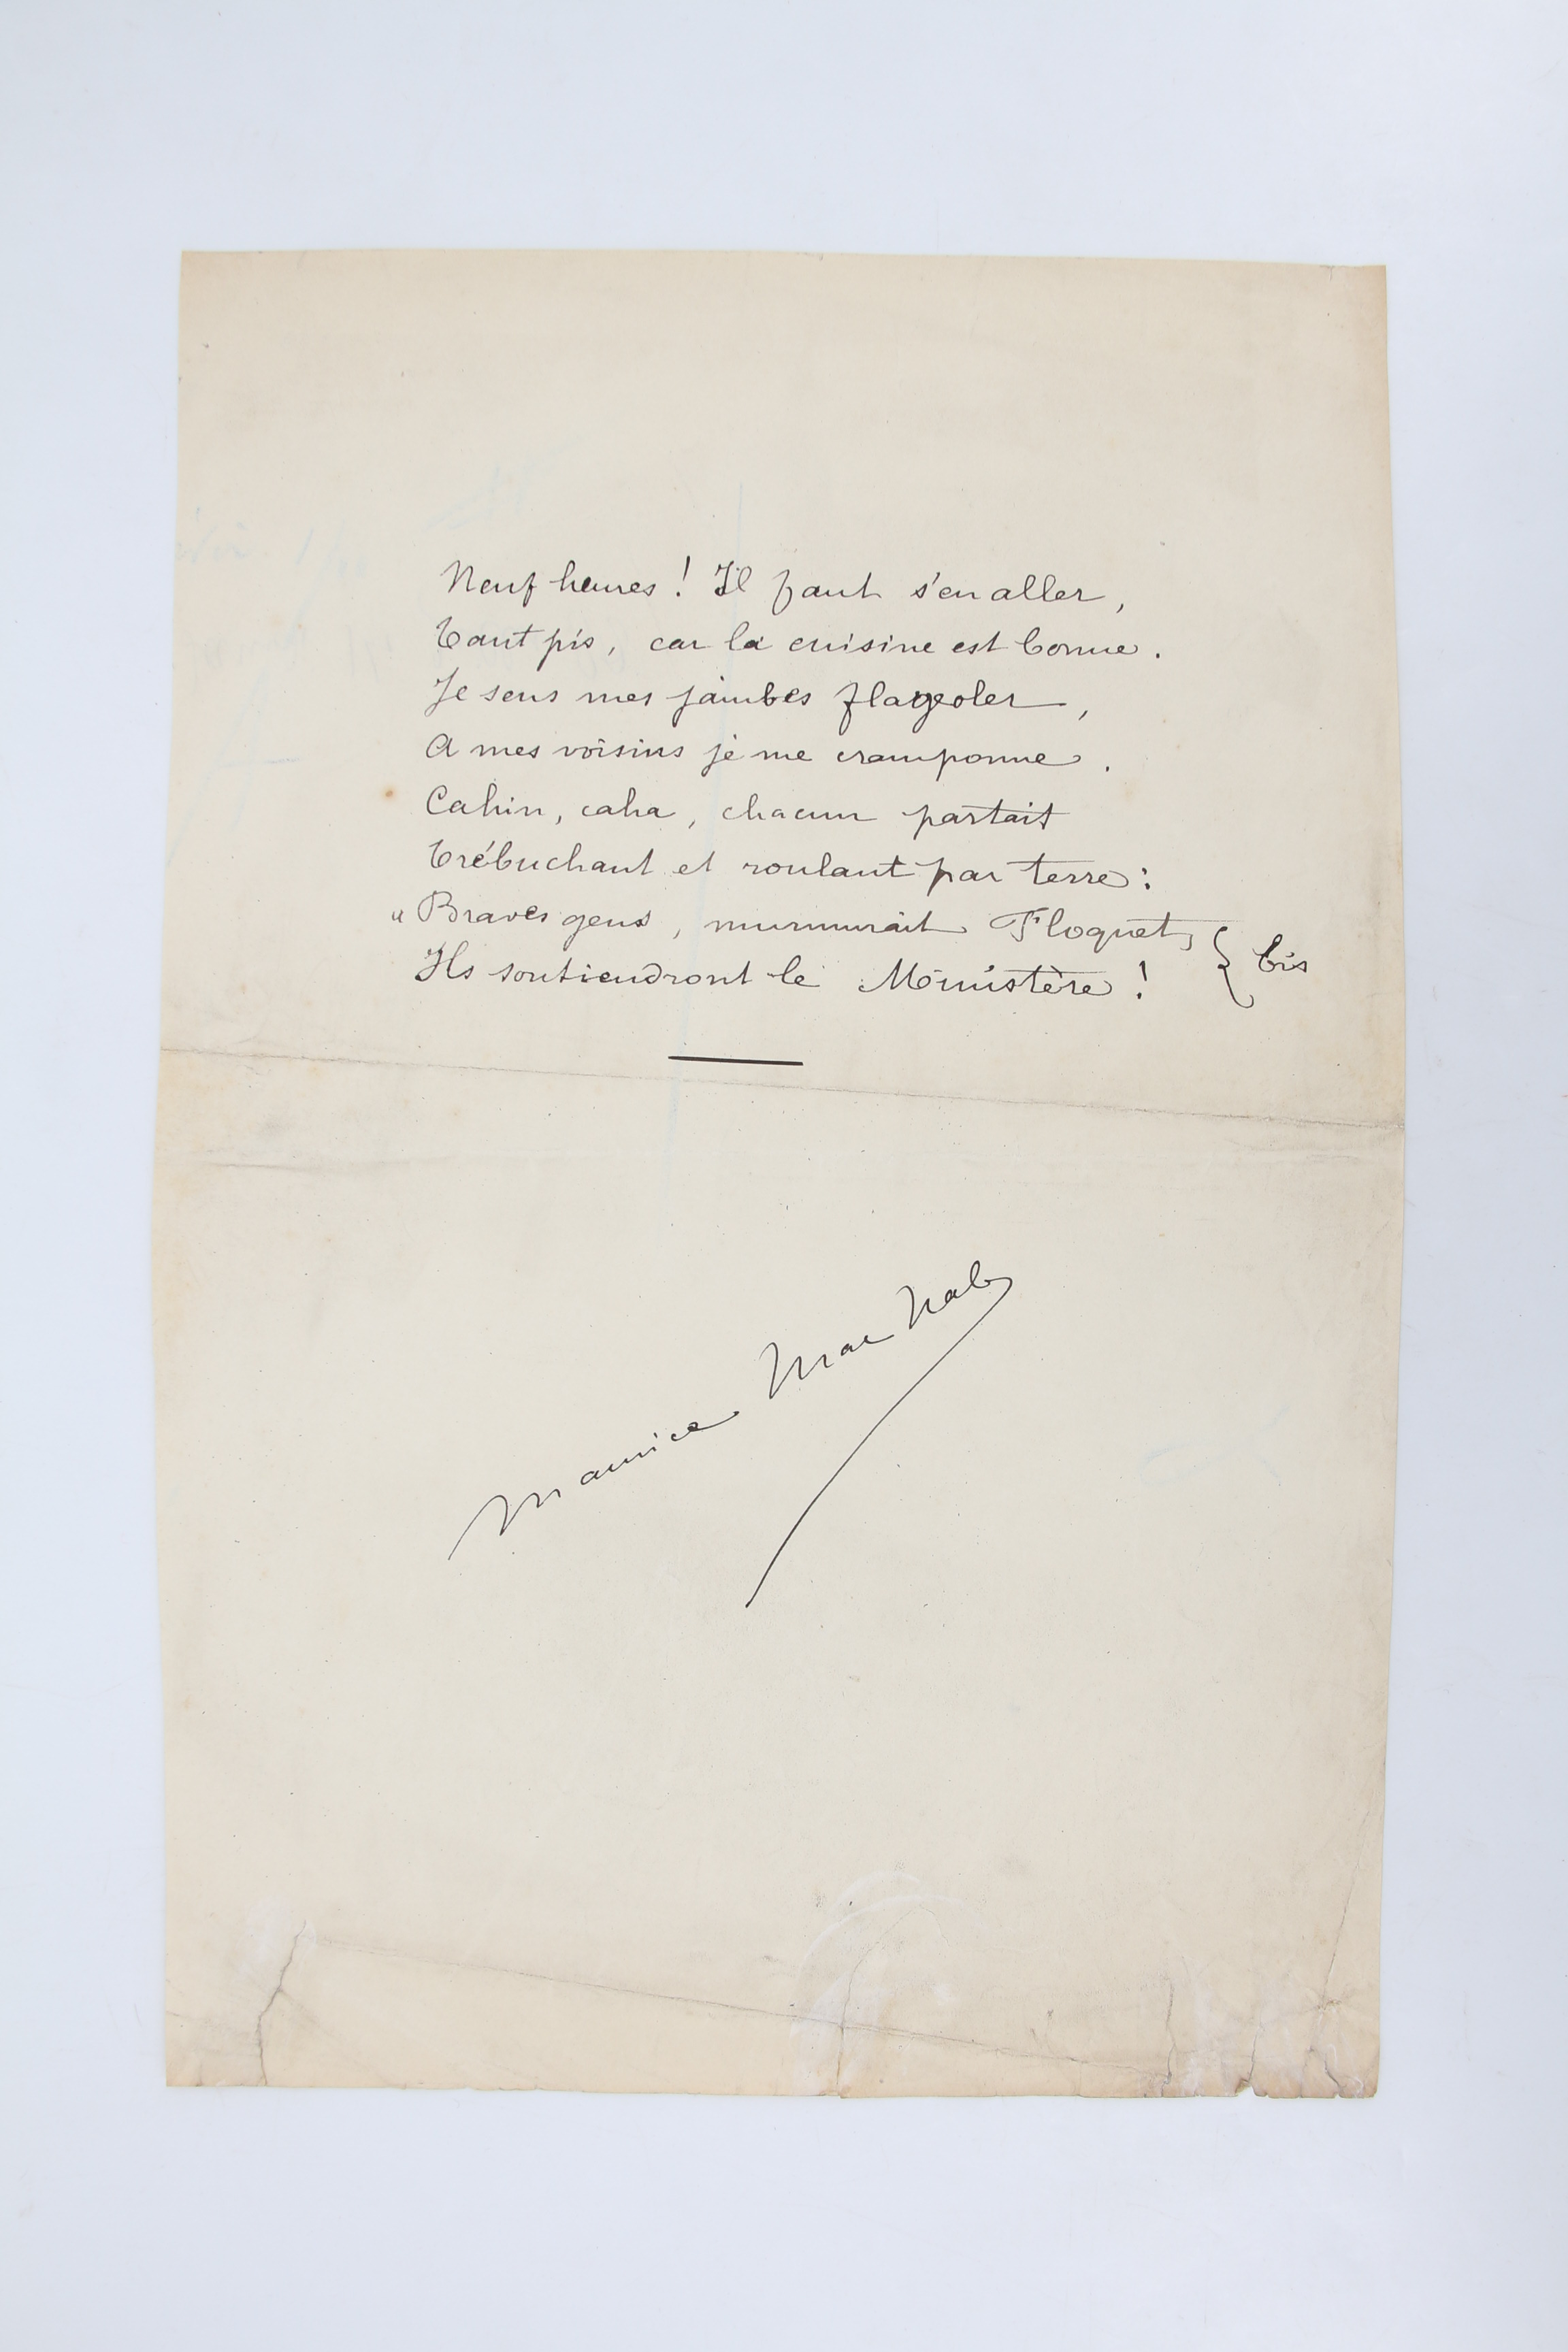 Neuf heures ! Il faut s'en aller,
Tant pis, car la cuisine est bonne.
Je sens mes jambes flageoler,
A mes voisins je me cramponne.
Cahin, caha, chacun partait
Trébuchant et roulant par terre :
« Braves gens, murmurait Floquet, } bis
Ils soutiendront le Ministère !
Maurice Mac Nab